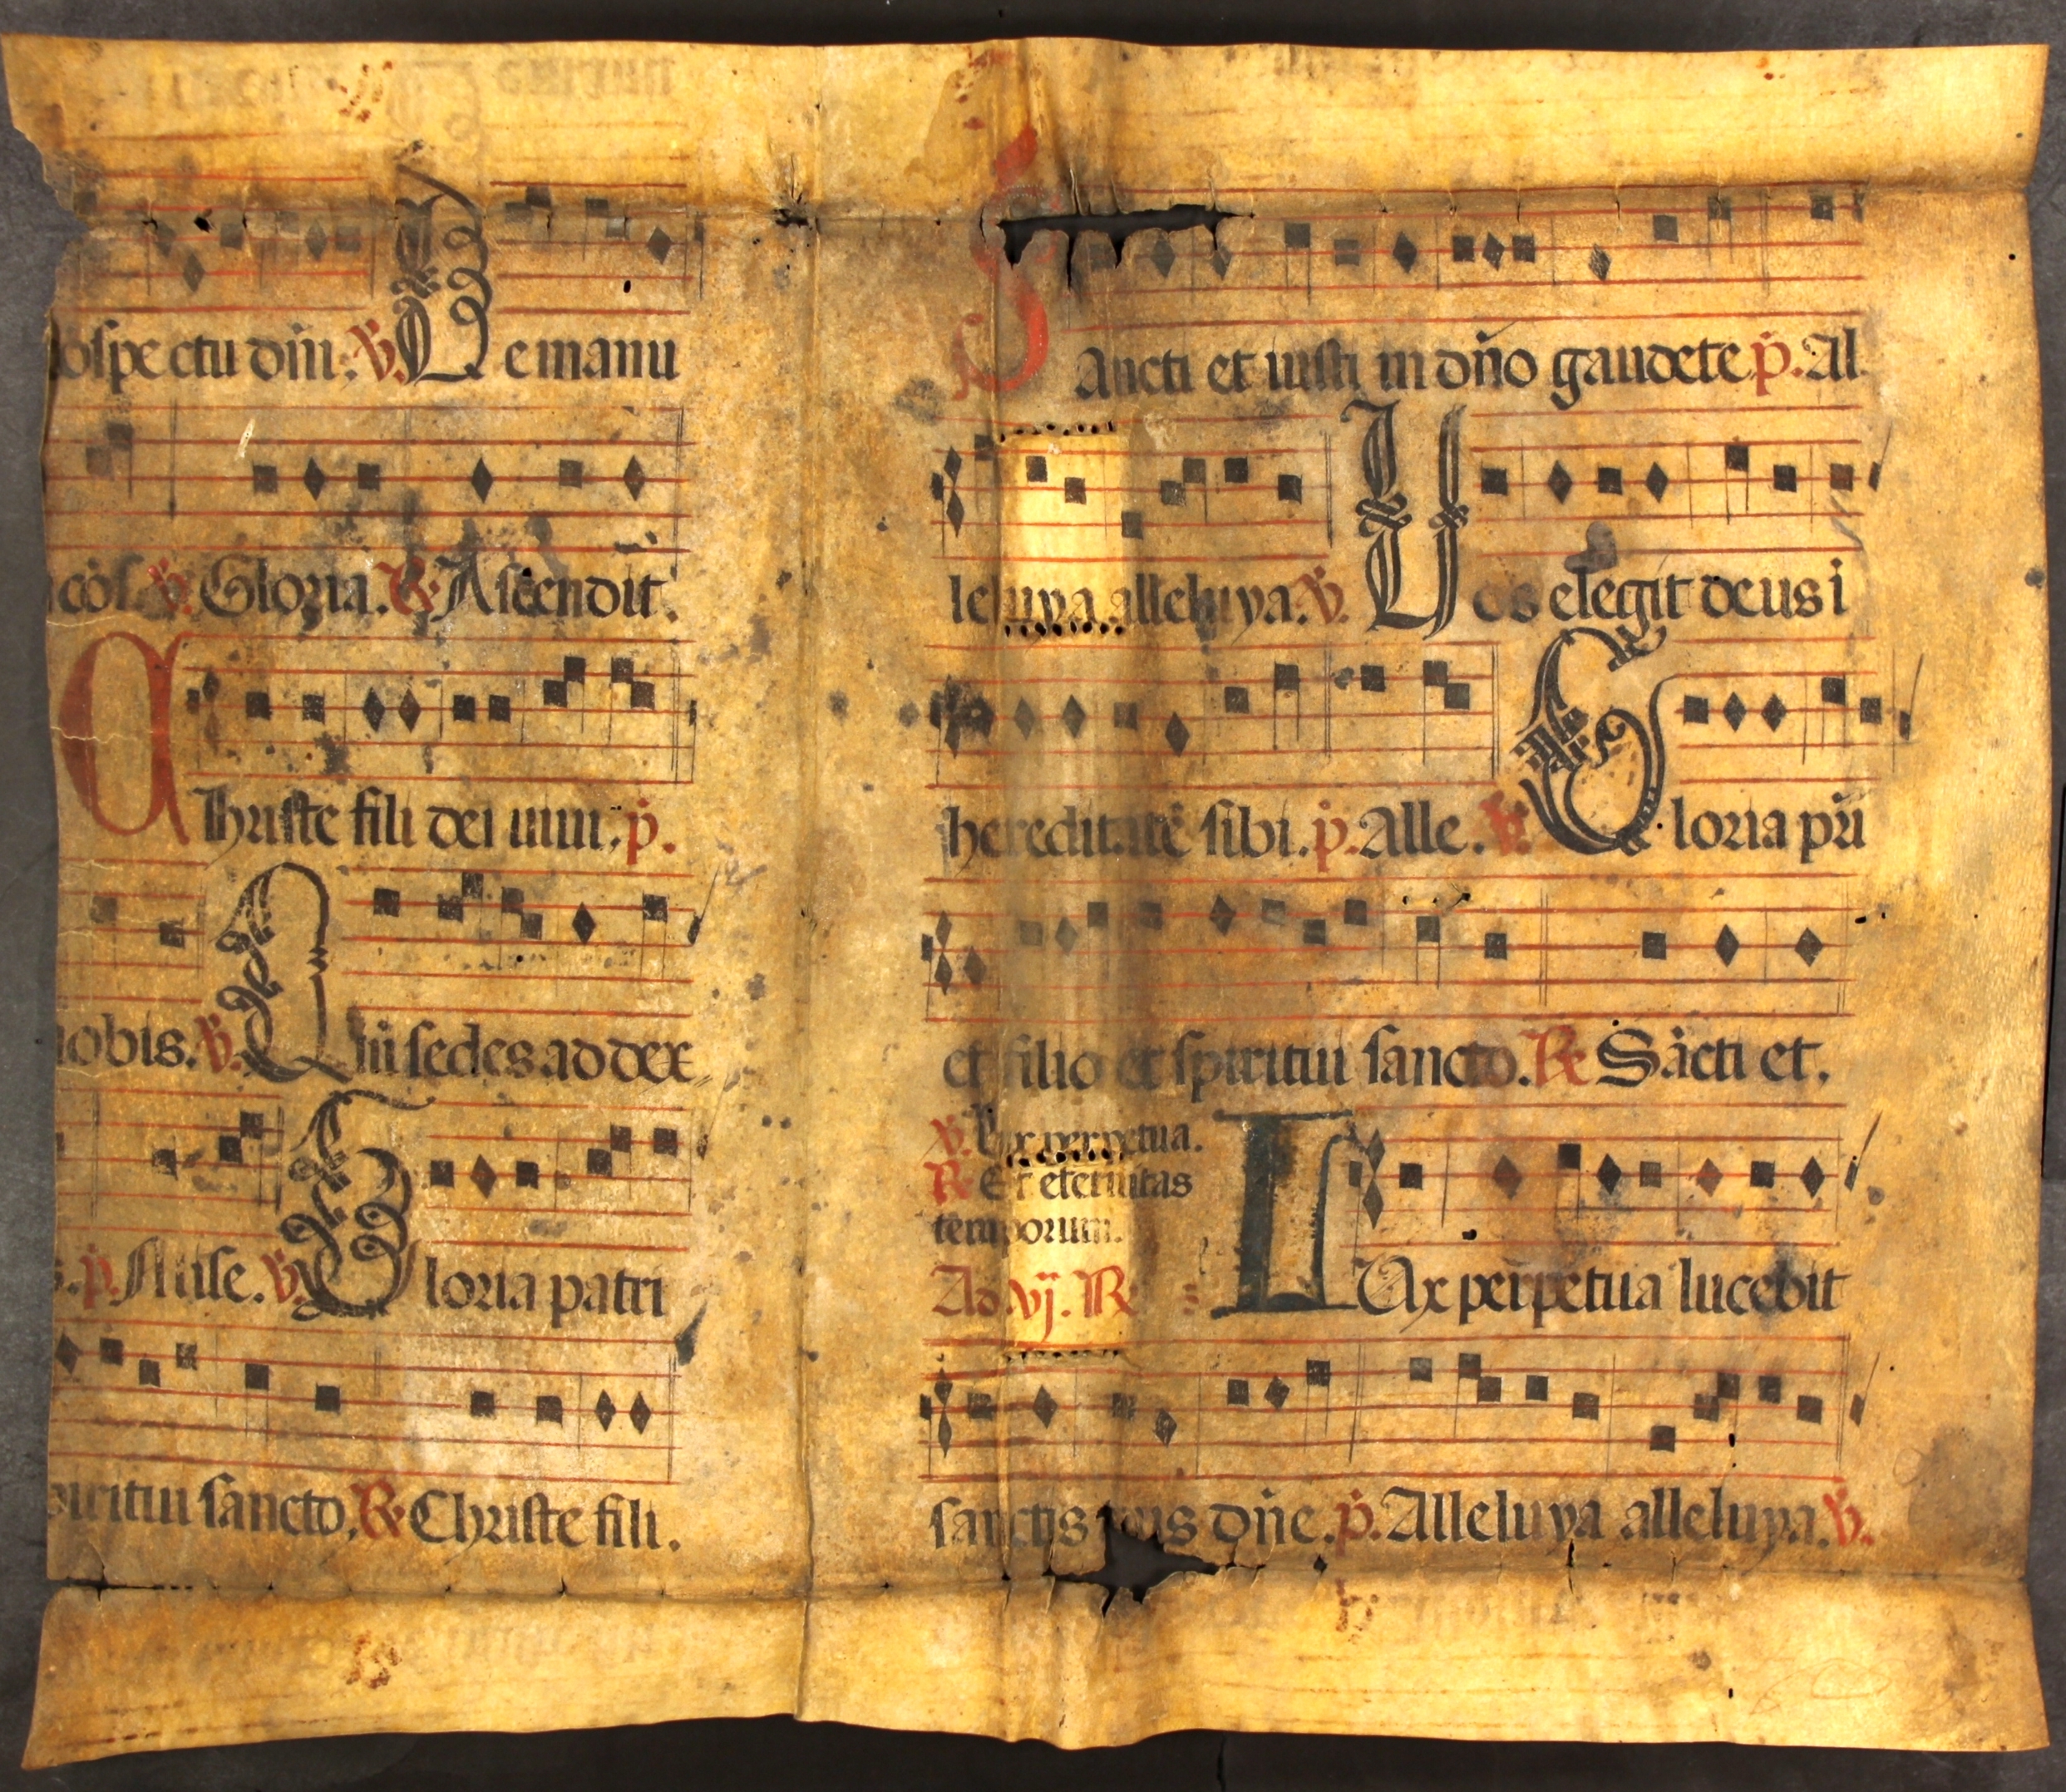 ospectu dñi: ℣. De manu
℣. Gloria. ℟ Ascendit.
Christe fili dei uiui. p̊.
nobis. ℣. Qui sedes ad dex
p̊. Mise. ℣. Gloria patri
piritui sancto. ℟ Christe fili.
Sancti et iusti in dño gaudete. p̊. Al
leluya alleluya. ℣. Uos elegit deus i
hereditatē sibi. p̊. Alle. ℣. Gloria pr̄i
et filio et spiritui sancto. ℟ Sācti et.
℣. Lux perpetua.
℟ Et eternitas
temporum.
Ad vj. ℟
LUx perpetua lucebit
sanctis tuis dñe. p̊. Alleluya alleluya. ℣.